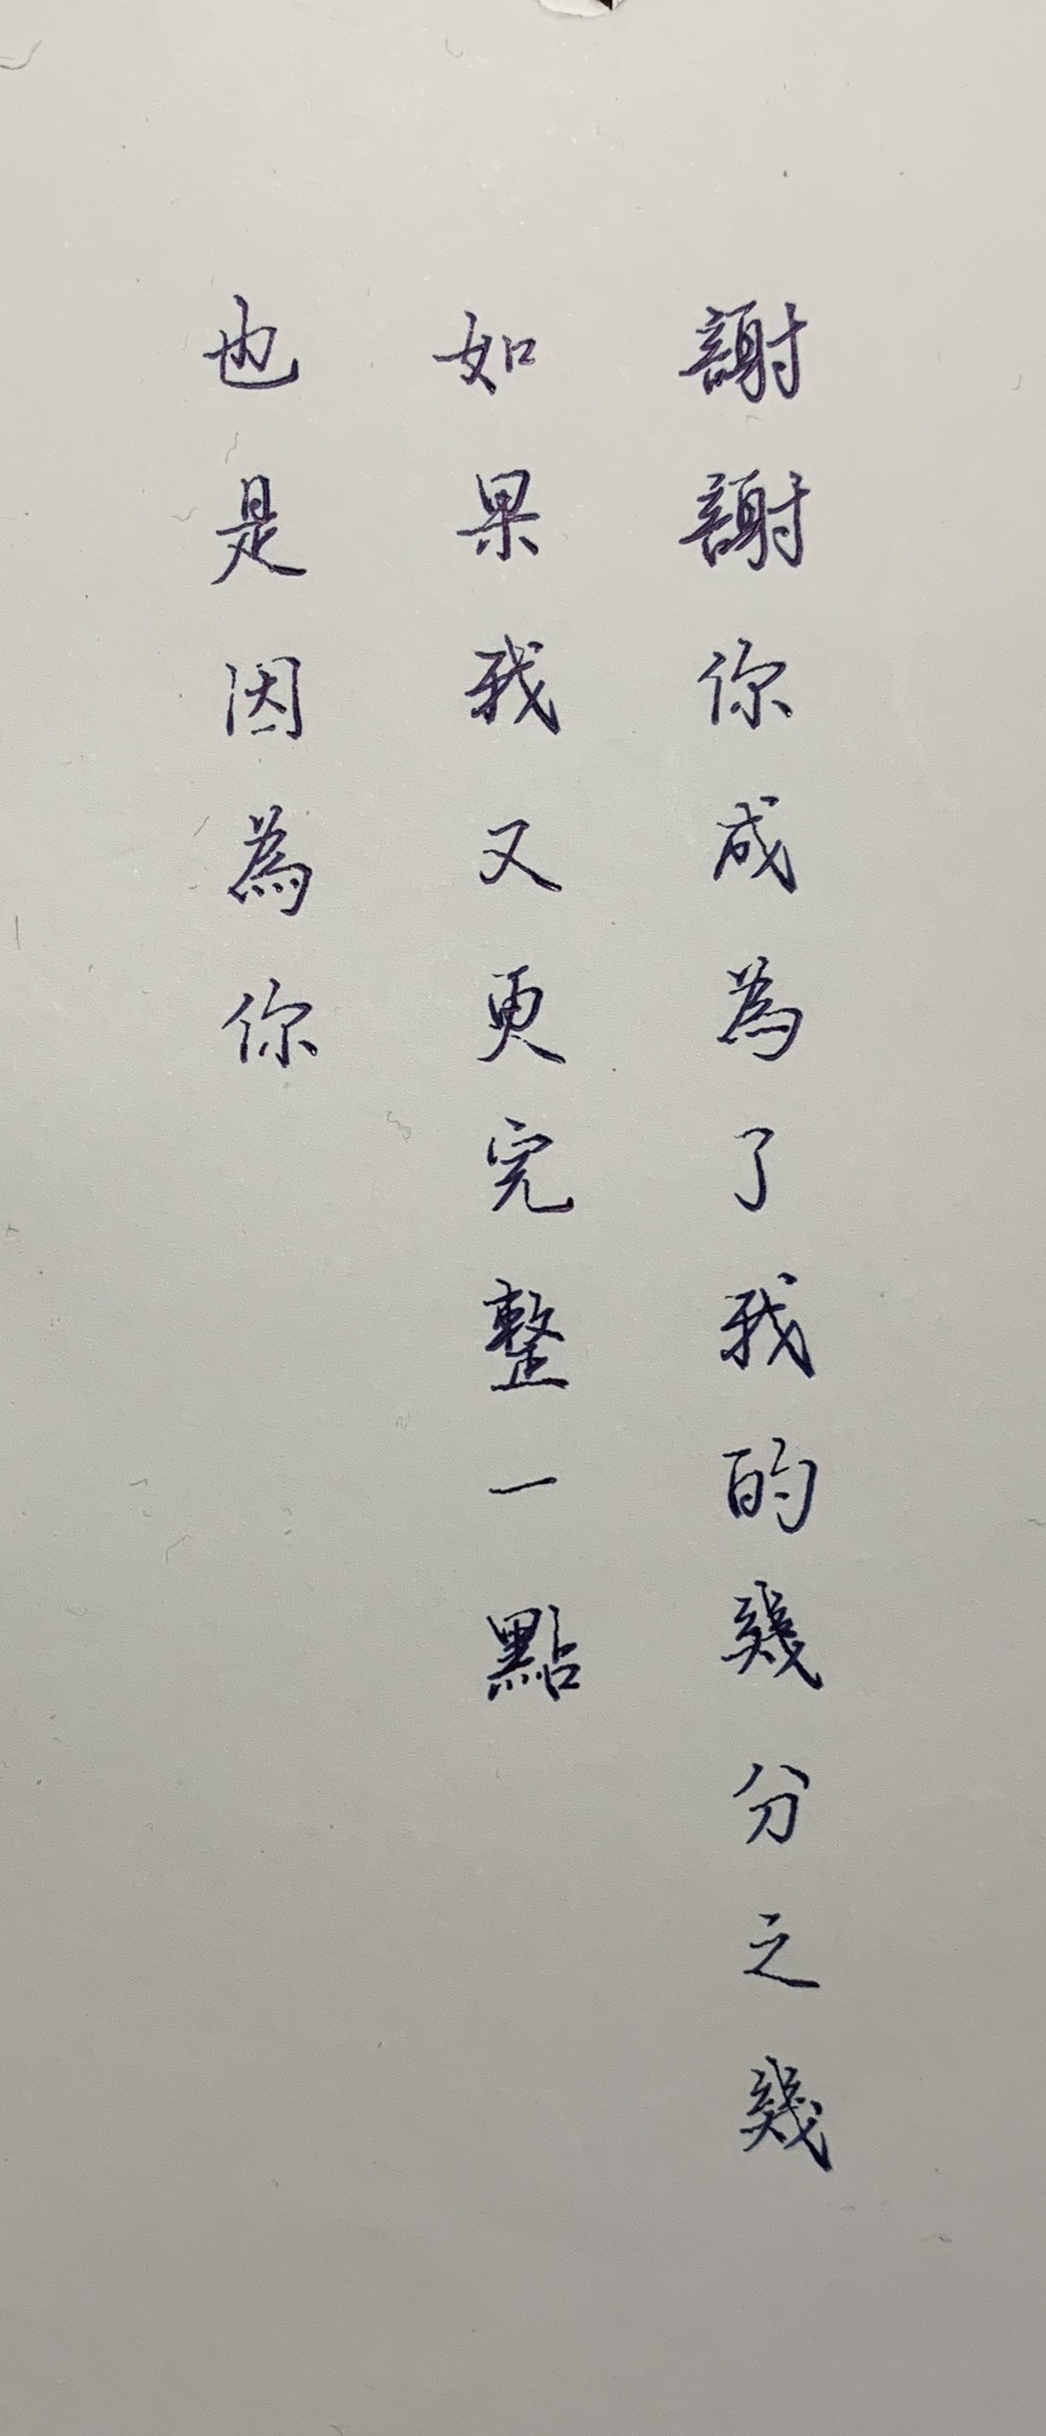 謝謝你成為了我的幾分之幾
如果我又更完整一點
也是因為你